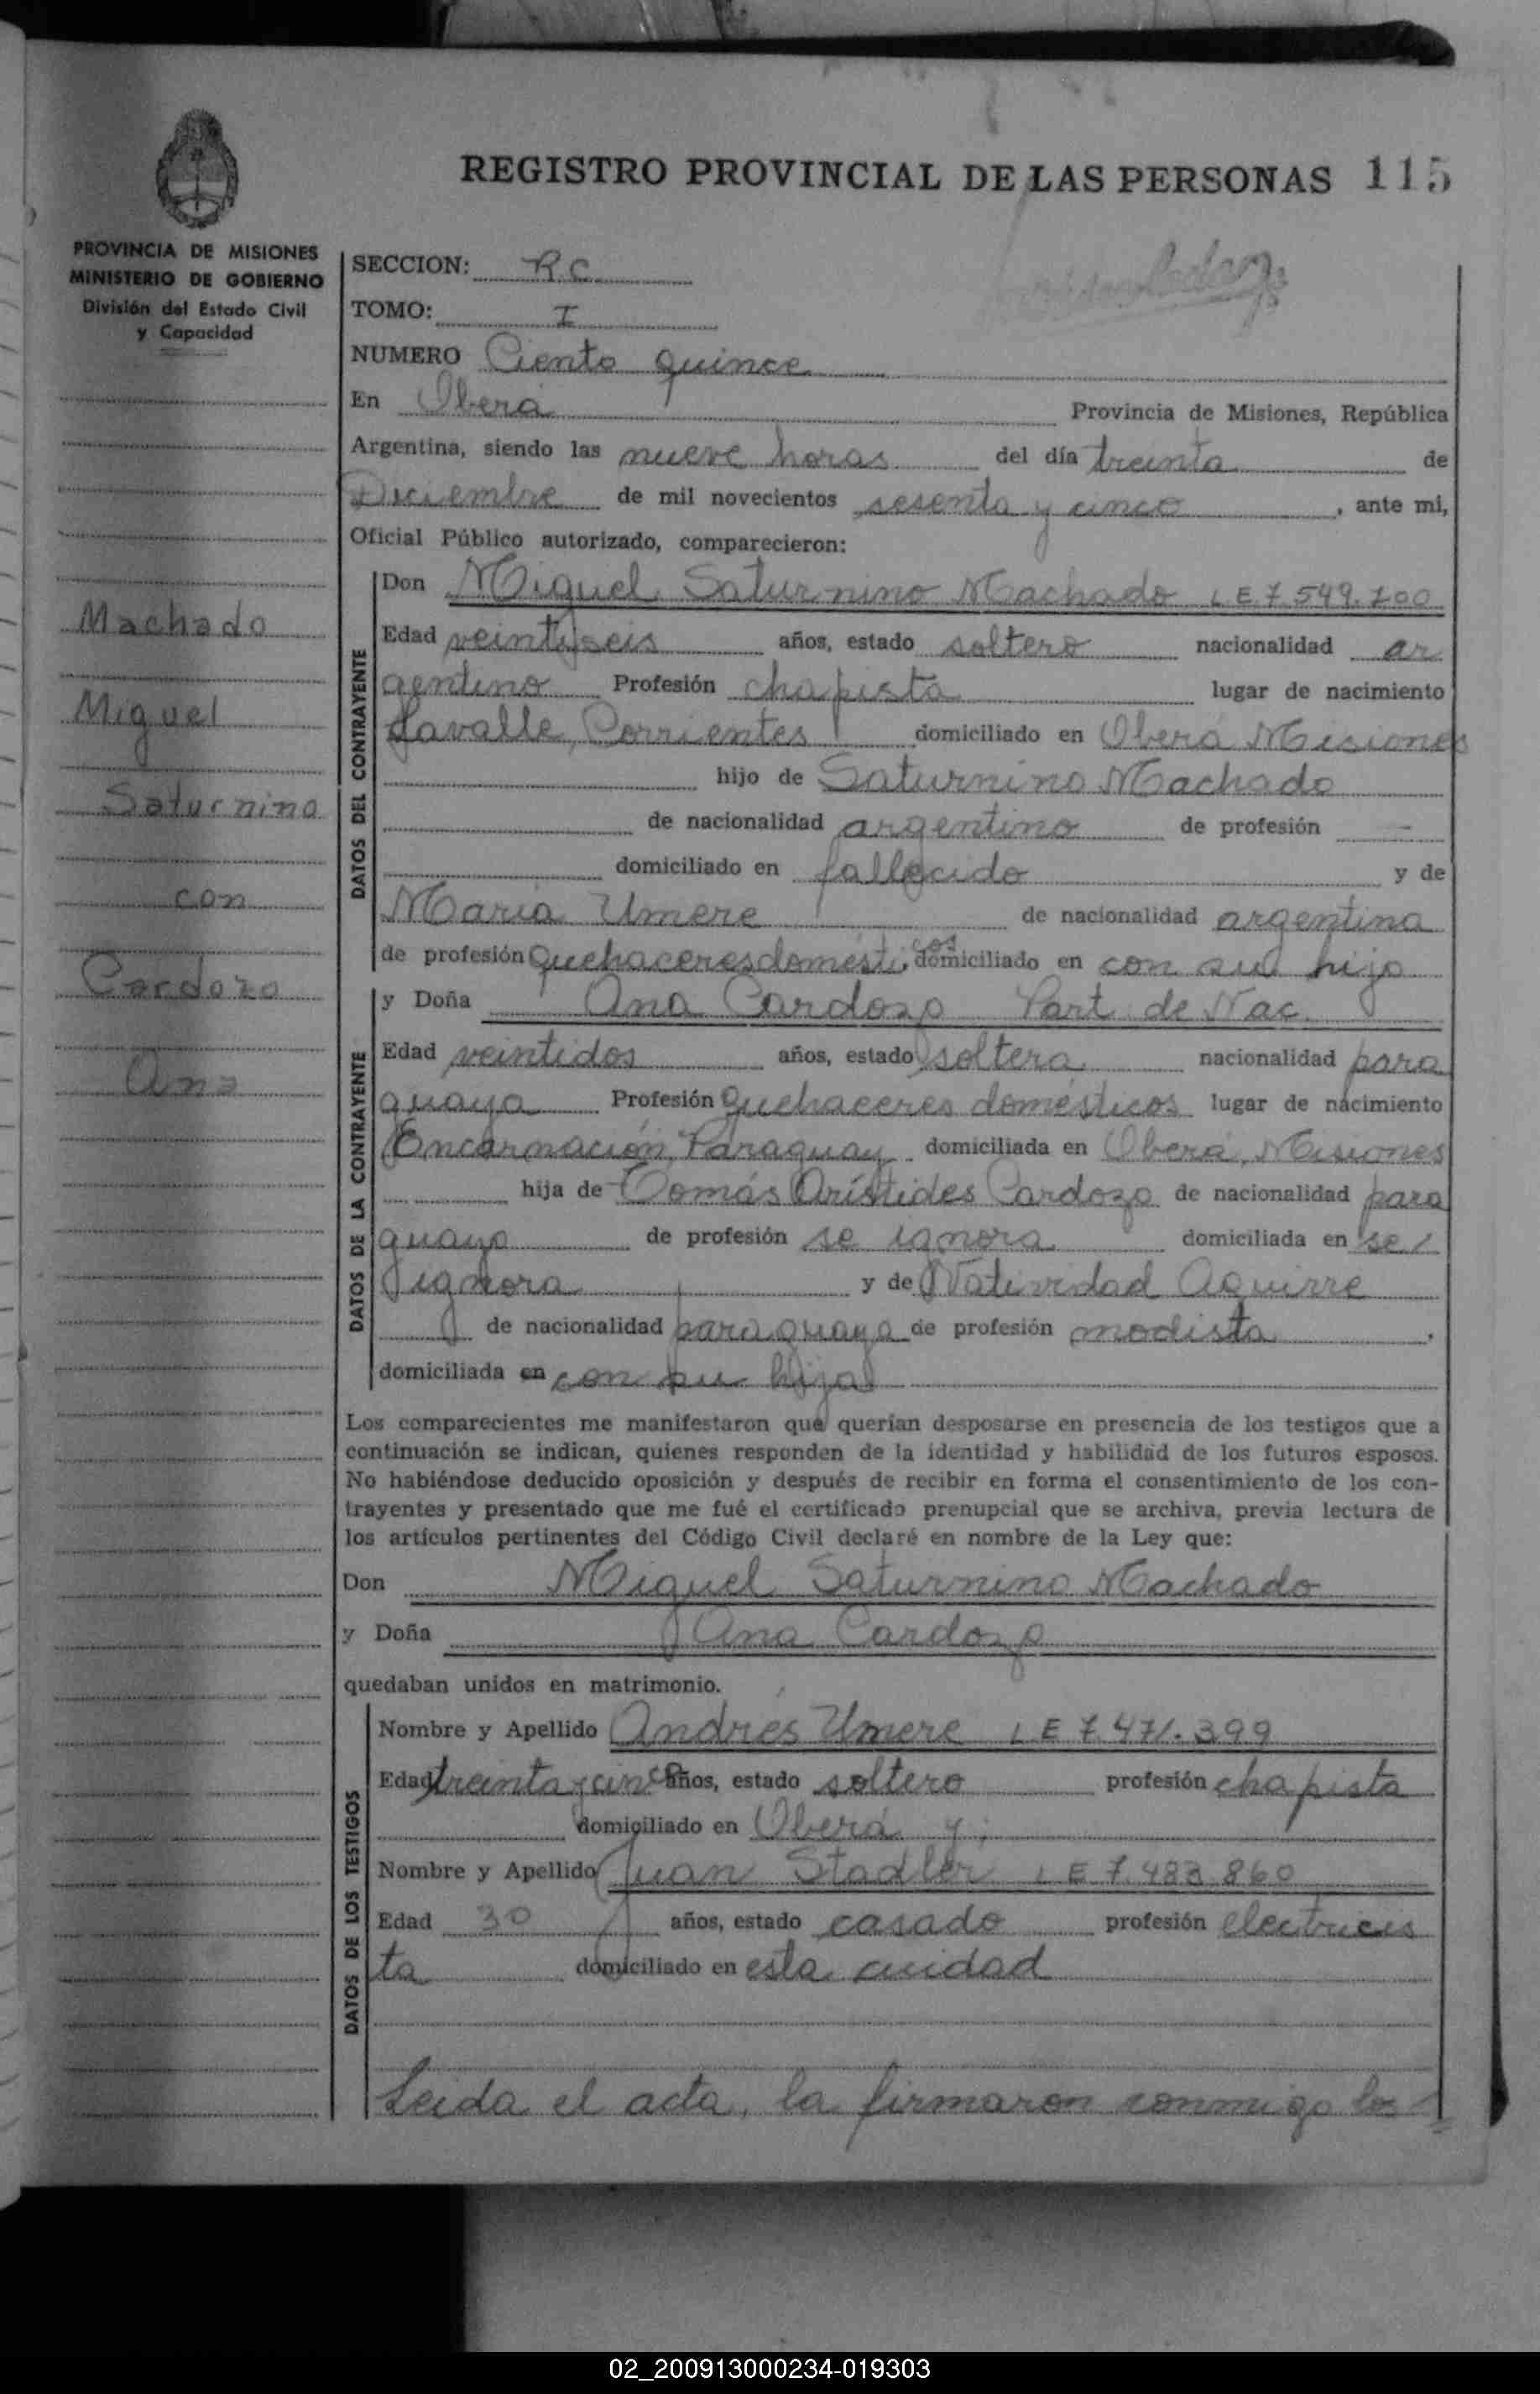 REGISTRO PROVINCIAL DE LAS PERSONAS 115
PROVINCIA DE MISIONES
MINISTERIO DE GOBIERNO
División del Estado Civil
y Capacidad
Machado
Miguel
Saturnino
con
Cardozo
Ana
SECCION: R.C.
TOMO: I
NUMERO Ciento quince
En Oberá Provincia de Misiones, República
Argentina, siendo las nueve horas del día treinta de
Diciembre de mil novecientos sesenta y cinco, ante mi,
Oficial Público autorizado, comparecieron:
DATOS DEL CONTRAYENTE
Don Miguel Saturnino Machado LE 7.549.700
Edad veintiseis años, estado soltero nacionalidad ar
gentino Profesión chapista lugar de nacimiento
Lavalle, Corrientes domiciliado en Oberá Misiones
hijo de Saturnino Machado
de nacionalidad argentino de profesión —
domiciliado en fallecido y de
María Umere de nacionalidad argentina
de profesión Quehaceres domésticos domiciliado en con su hijo
DATOS DE LA CONTRAYENTE
y Doña Ana Cardozo Part. de Nac.
Edad veintidos años, estado soltera nacionalidad para
guaya Profesión Quehaceres domésticos lugar de nacimiento
Encarnación, Paraguay domiciliada en Oberá, Misiones
hija de Tomás Arístides Cardozo de nacionalidad para
guayo de profesión se ignora domiciliada en se/
ignora y de Natividad Aguirre
de nacionalidad paraguaya de profesión modista,
domiciliada en con su hija
Los comparecientes me manifestaron que querían desposarse en presencia de los testigos que a
continuación se indican, quienes responden de la identidad y habilidad de los futuros esposos.
No habiéndose deducido oposición y después de recibir en forma el consentimiento de los con-
trayentes y presentado que me fué el certificado prenupcial que se archiva, previa lectura de
los artículos pertinentes del Código Civil declaré en nombre de la Ley que:
Don Miguel Saturnino Machado
y Doña Ana Cardozo
quedaban unidos en matrimonio.
DATOS DE LOS TESTIGOS
Nombre y Apellido Andres Umere LE 7.471.399
Edad treinta y cinco años, estado soltero profesión chapista
domiciliado en Oberá y;
Nombre y Apellido Juan Stadler LE 7.483.860
Edad 30 años, estado casado profesión electricis
ta domiciliado en esta ciudad
Leida el acta, la firmaron conmigo los
02_200913000234-019303